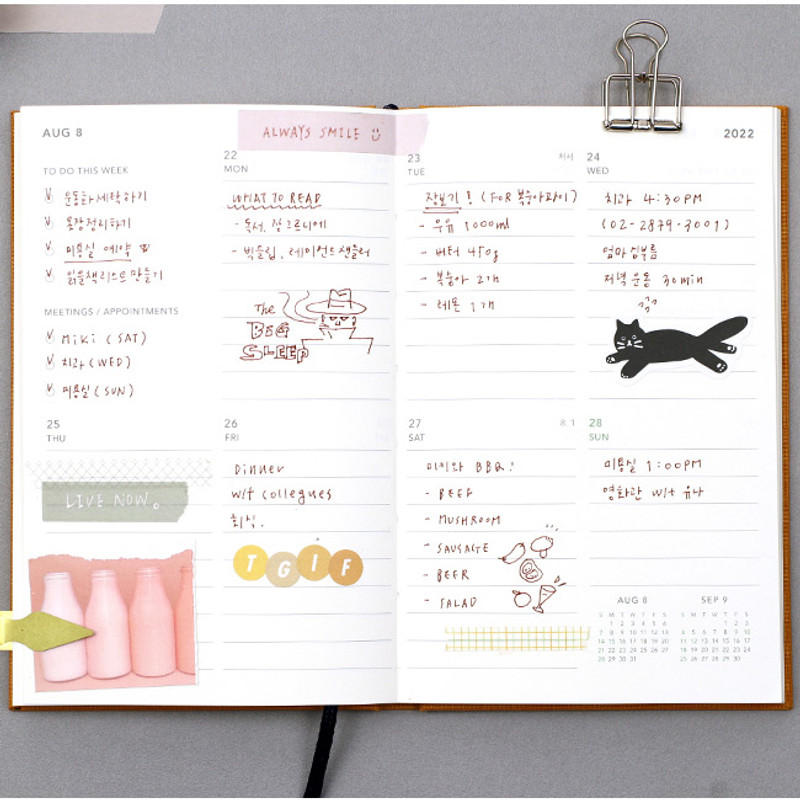 AUG 8
ALWAYS SMILE
2022
TO DO THIS WEEK
운동화세탁하기
옷장정리하기
미용실 예약
읽을책리스트 만들기
MEETINGS / APPOINTMENTS
MIKI (SAT)
치과 (WED)
미용실 (SUN)
22
MON
WHAT TO READ
- 독서, 장 그르니에
- 빅슬립, 레이먼드챈들러
The
BIG
SLEEP
23
처서
TUE
장보기! (FOR 복숭아파이)
- 우유 1000ml
- 버터 450g
- 복숭아 2개
- 레몬 1개
24
WED
치과 4:30PM
(02-2879-3001)
엄마심부름
저녁 운동 30min
25
THU
LIVE NOW.
26
FRI
Dinner
wit collegues
회식.
TGIF
27
8.1
SAT
미키와 BBQ!
- BEEF
- MUSHROOM
- SAUSAGE
- BEER
- SALAD
28
SUN
미용실 1:00PM
영화관 wit 유나
AUG 8
S M T W T F S
1 2 3 4 5 6
7 8 9 10 11 12 13
14 15 16 17 18 19 20
21 22 23 24 25 26 27
28 29 30 31
SEP 9
S M T W T F S
1 2 3
4 5 6 7 8 9 10
11 12 13 14 15 16 17
18 19 20 21 22 23 24
25 26 27 28 29 30